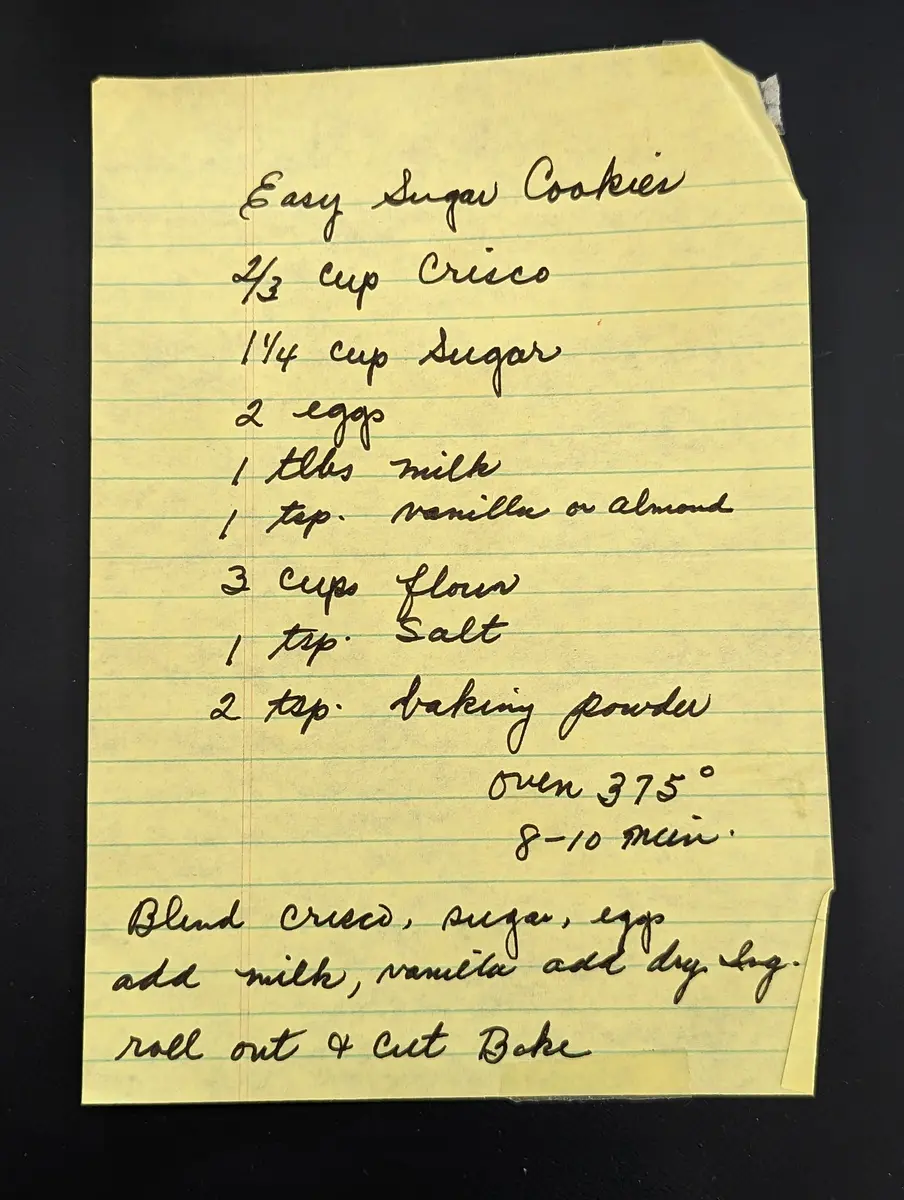 Easy Sugar Cookies
2/3 cup Crisco
1 1/4 cup Sugar
2 eggs
1 tlbs milk
1 tsp. vanilla or almond
3 cups flour
1 tsp. Salt
2 tsp. baking powder
oven 375°
8-10 min.
Blend crisco, sugar, eggs
add milk, vanilla add dry Ing.
roll out & cut Bake